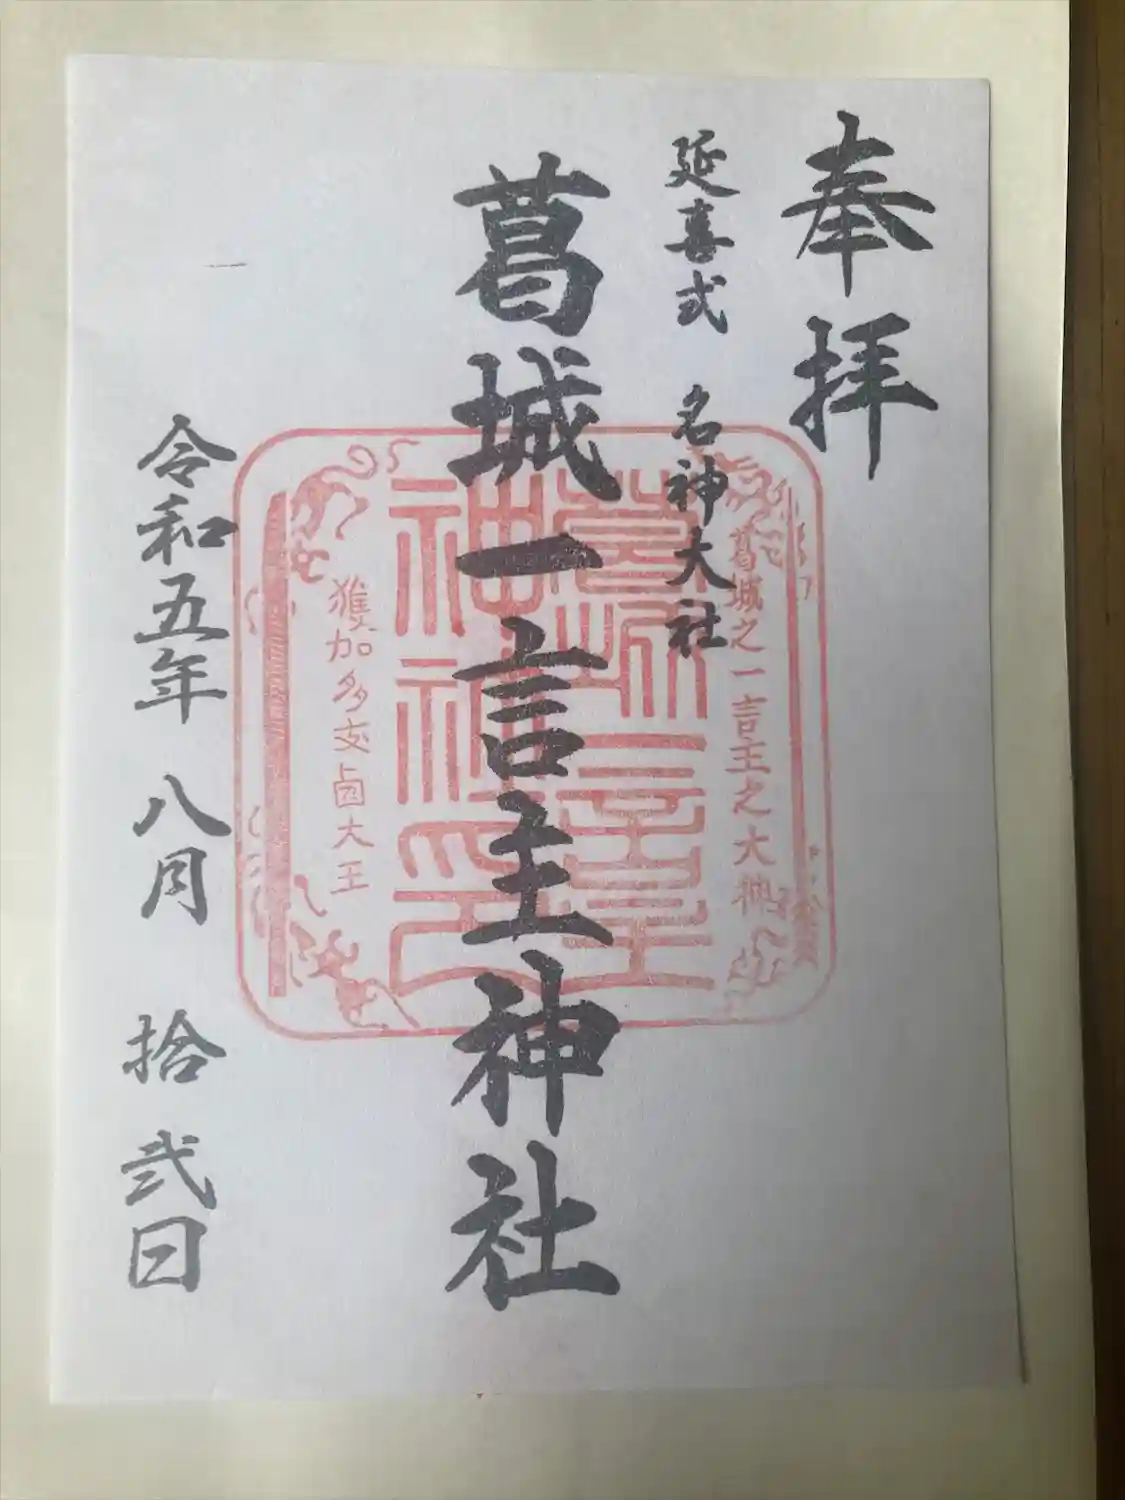 奉拝
延喜式 名神大社
葛城之一言主之大神
葛城一言主神社
葛城一言主神社之印
獲加多支鹵大王
令和五年 八月 拾弐日